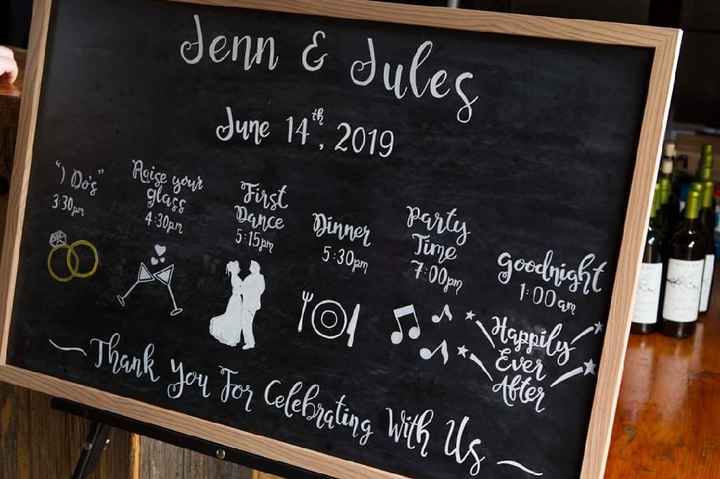 Jenn & Jules
June 14th, 2019
"I Do's"
3:30pm
Raise your
glass
4:30pm
First
Dance
5:15pm
Dinner
5:30pm
Party
Time
7:00pm
Goodnight
1:00am
Happily
Ever
After
Thank You For Celebrating With Us